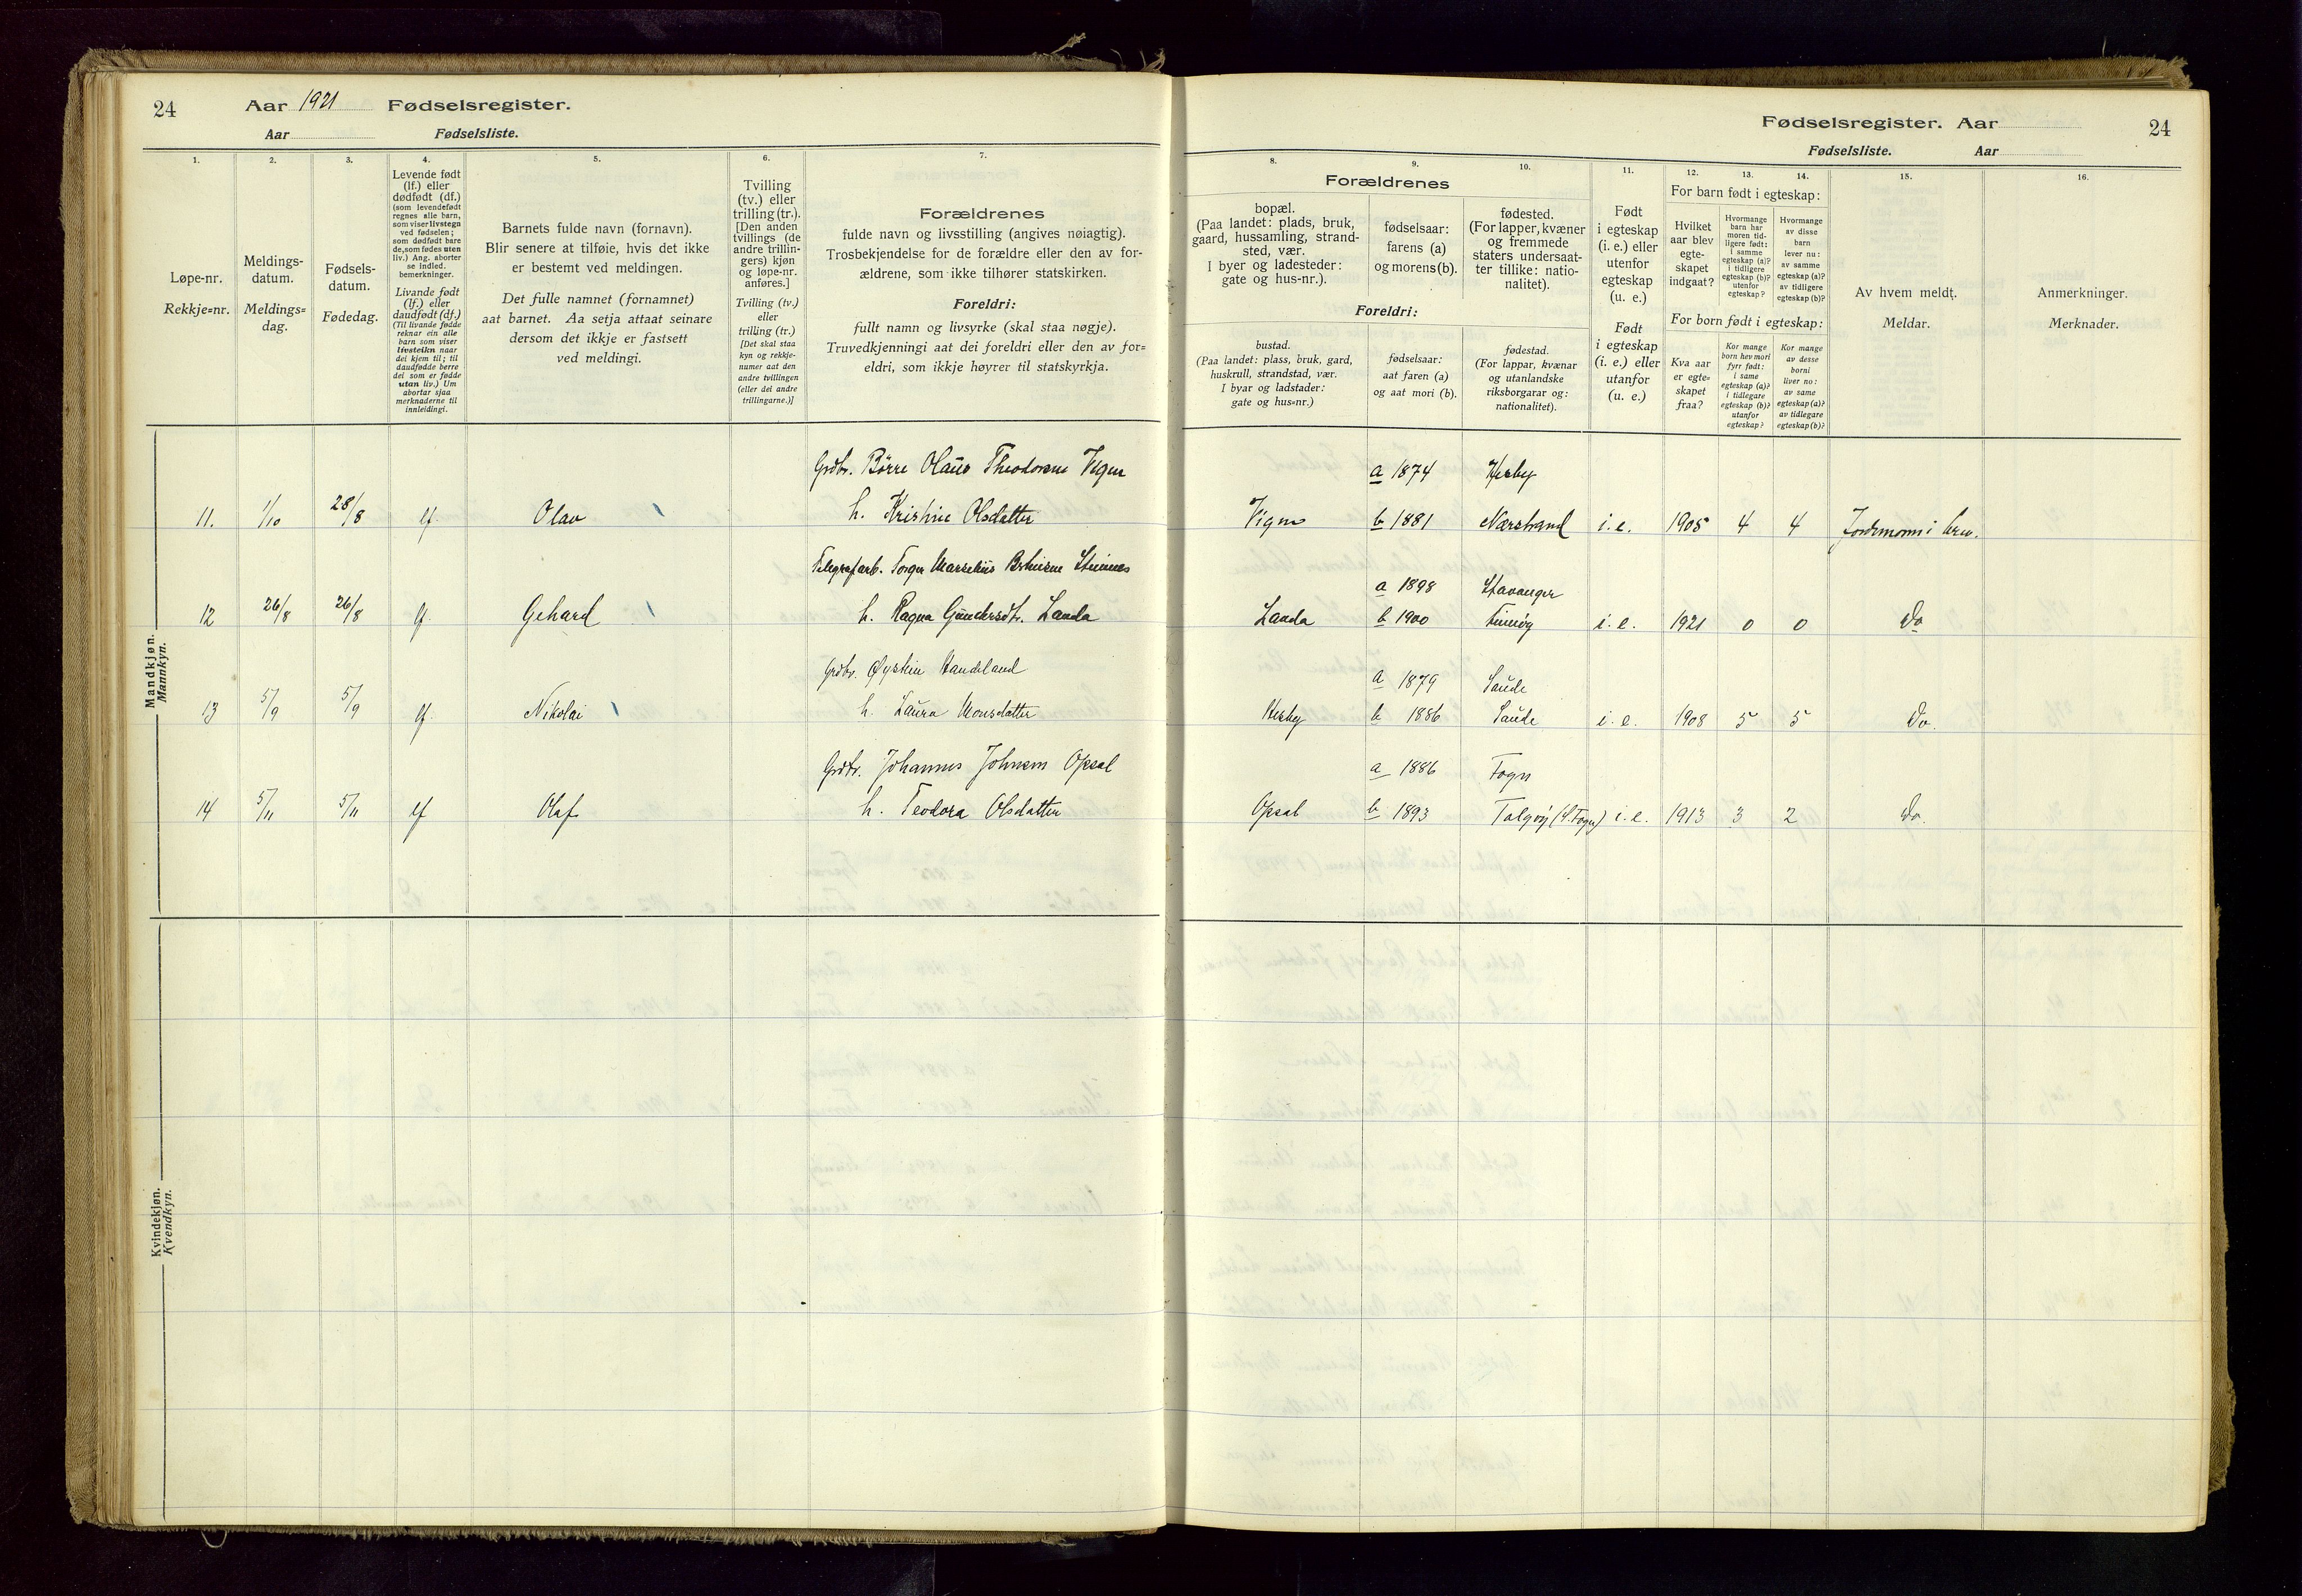 24 Aar 1921 Fødselsregister.
Aar Fødselsliste.
1.
2.
3.
4.
5.
6.
7.
Løpe-nr.
Rekkje=nr.
Meldings-
datum.
Meldings=
dag.
Fødsels-
datum.
Fødedag.
Levende født
(lf.) eller
dødfødt (df.)
(som levendefødt
regnes alle barn,
som viser livstegn
ved fødselen;
som dødfødt bare
de, som fødes uten
liv.) Ang. aborter
se indled.
bemerkninger.
Livande født
(lf.) eller
daudfødt (df.)
(Til livande fødde
reknar ein alle
barn som viser
livsteikn naar
dei kjem til; til
daudfødde berre
dei som er fødde
utan liv.) Um
abortar sjaa
merknaderne til
innleidingi.
Barnets fulde navn (fornavn).
Blir senere at tilføie, hvis det ikke
er bestemt ved meldingen.
Det fulle namnet (fornamnet)
aat barnet. Aa setja attaat seinare
dersom det ikkje er fastsett
ved meldingi.
Tvilling
(tv.) eller
trilling (tr.).
[Den anden
tvillings (de
andre trillin-
gers) kjøn
og løpe-nr.
anføres.]
Tvilling (tv.)
eller
trilling (tr.)
[Det skal staa
kyn og rekkje-
numer aat den
andre tvillingen
(eller dei andre
trillingarne.)]
Forældrenes
fulde navn og livsstilling (angives nøiagtig).
Trosbekjendelse for de forældre eller den av for-
ældrene, som ikke tilhører statskirken.
Foreldri:
fullt namn og livsyrke (skal staa nøgje).
Truvedkjenningi aat dei foreldri eller den av for=
eldri, som ikkje høyrer til statskyrkja.
Mandkjøn.
Mannkyn.
Grdbr. Børre Olaus Theodorsen Vignes
11. 1/10 28/8 lf. Olav h. Kristine Olsdatter
Telegrafarb. Torger
12 26/8 26/8 lf. Gehard h. Ragna Gundersdtr. Landa
Grdbr. Øystein Handeland
13 5/9 5/9 lf. Nikolai h. Laura Monsdatter
Grdbr. Johannes Johnsen Opsal
14 5/11 5/11 lf Olaf h. Teodora Olsdatter
Kvindekjøn.
Kvendkyn.
Fødselsregister. Aar 24
Fødselsliste. Aar
8.
9.
10.
11.
12.
13.
14.
15.
16.
Forældrenes
bopæl.
(Paa landet: plads, bruk,
gaard, hussamling, strand-
sted, vær.
I byer og ladesteder:
gate og hus-nr.).
fødselsaar:
farens (a)
og morens (b).
fødested.
(For lapper, kvæner
og fremmede
staters undersaat-
ter tillike: natio-
nalitet).
Foreldri:
bustad.
(Paa landet: plass, bruk, gard,
huskrull, strandstad, vær.
I byar og ladstader:
gate og hus=nr.)
fødselsaar:
aat faren (a)
og aat mori (b).
fødestad.
(For lappar, kvænar
og utanlandske
riksborgarar og:
nationalitet).
Født
i egteskap
(i. e.) eller
utenfor
egteskap
(u. e.)
Født
i egteskap
(i. e.) eller
utanfor
(u. e.)
For barn født i egteskap:
Hvilket
aar blev
egte-
skapet
indgaat?
Hvormange
barn har
moren tid-
ligere født:
i samme
egteskap (a)?
i tidligere
egteskap (b)?
utenfor
egteskap?
Hvormange
av disse
barn
lever nu:
av samme
egteskap (a)?
av tidligere
egteskap (b)?
For born født i egteskap:
Kva aar
er egte=
skapet
fraa?
Kor mange
born hev mori
fyrr født:
i same
egteskap (a)?
i tidlegare
egteskap (b)?
utanfor
egteskap?
Kor mange
av desse
borni
liver no:
av same
egteskap (a)?
av tidlegare
egteskap (b)?
Av hvem meldt.
Meldar.
Anmerkninger.
Merknader.
a 1874 Hesby
Vignes b 1881 Nærstrand i. e. 1905 4 4 Jordmorens i brev.
a 1898 Stavanger
Landa b 1900 Finnøy i. e. 1921 0 0 Do
a 1879 Saude
Hesby b 1886 Saude i. e. 1908 5 5 Do.
a 1886 Fogn
Opsal b 1893 Talgøy (S. Fogn) i. e. 1913 3 2 Do.